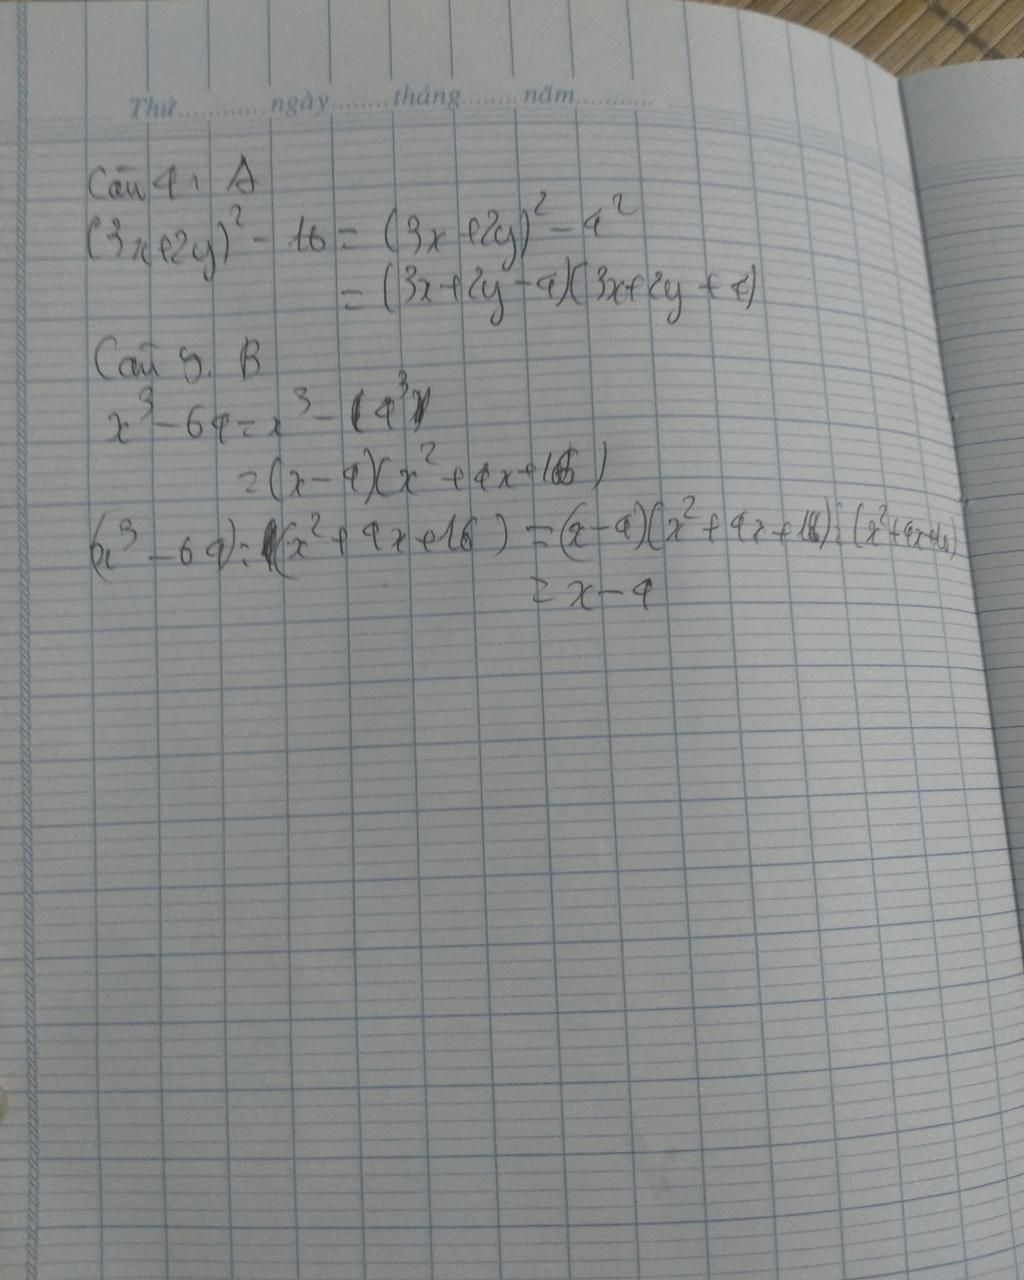 Thứ............ngày........tháng.......năm...........
Câu 4. A
(3x+2y)² - 16 = (3x+2y)² - 4²
= (3x+2y-4)(3x+2y+4)
Câu 5. B
x³-64=x³-(4³)
=(x-4)(x²+4x+16)
(x³-64):(x²+4x+16) = (x-4)(x²+4x+16):(x²+4x+16)
= x-4